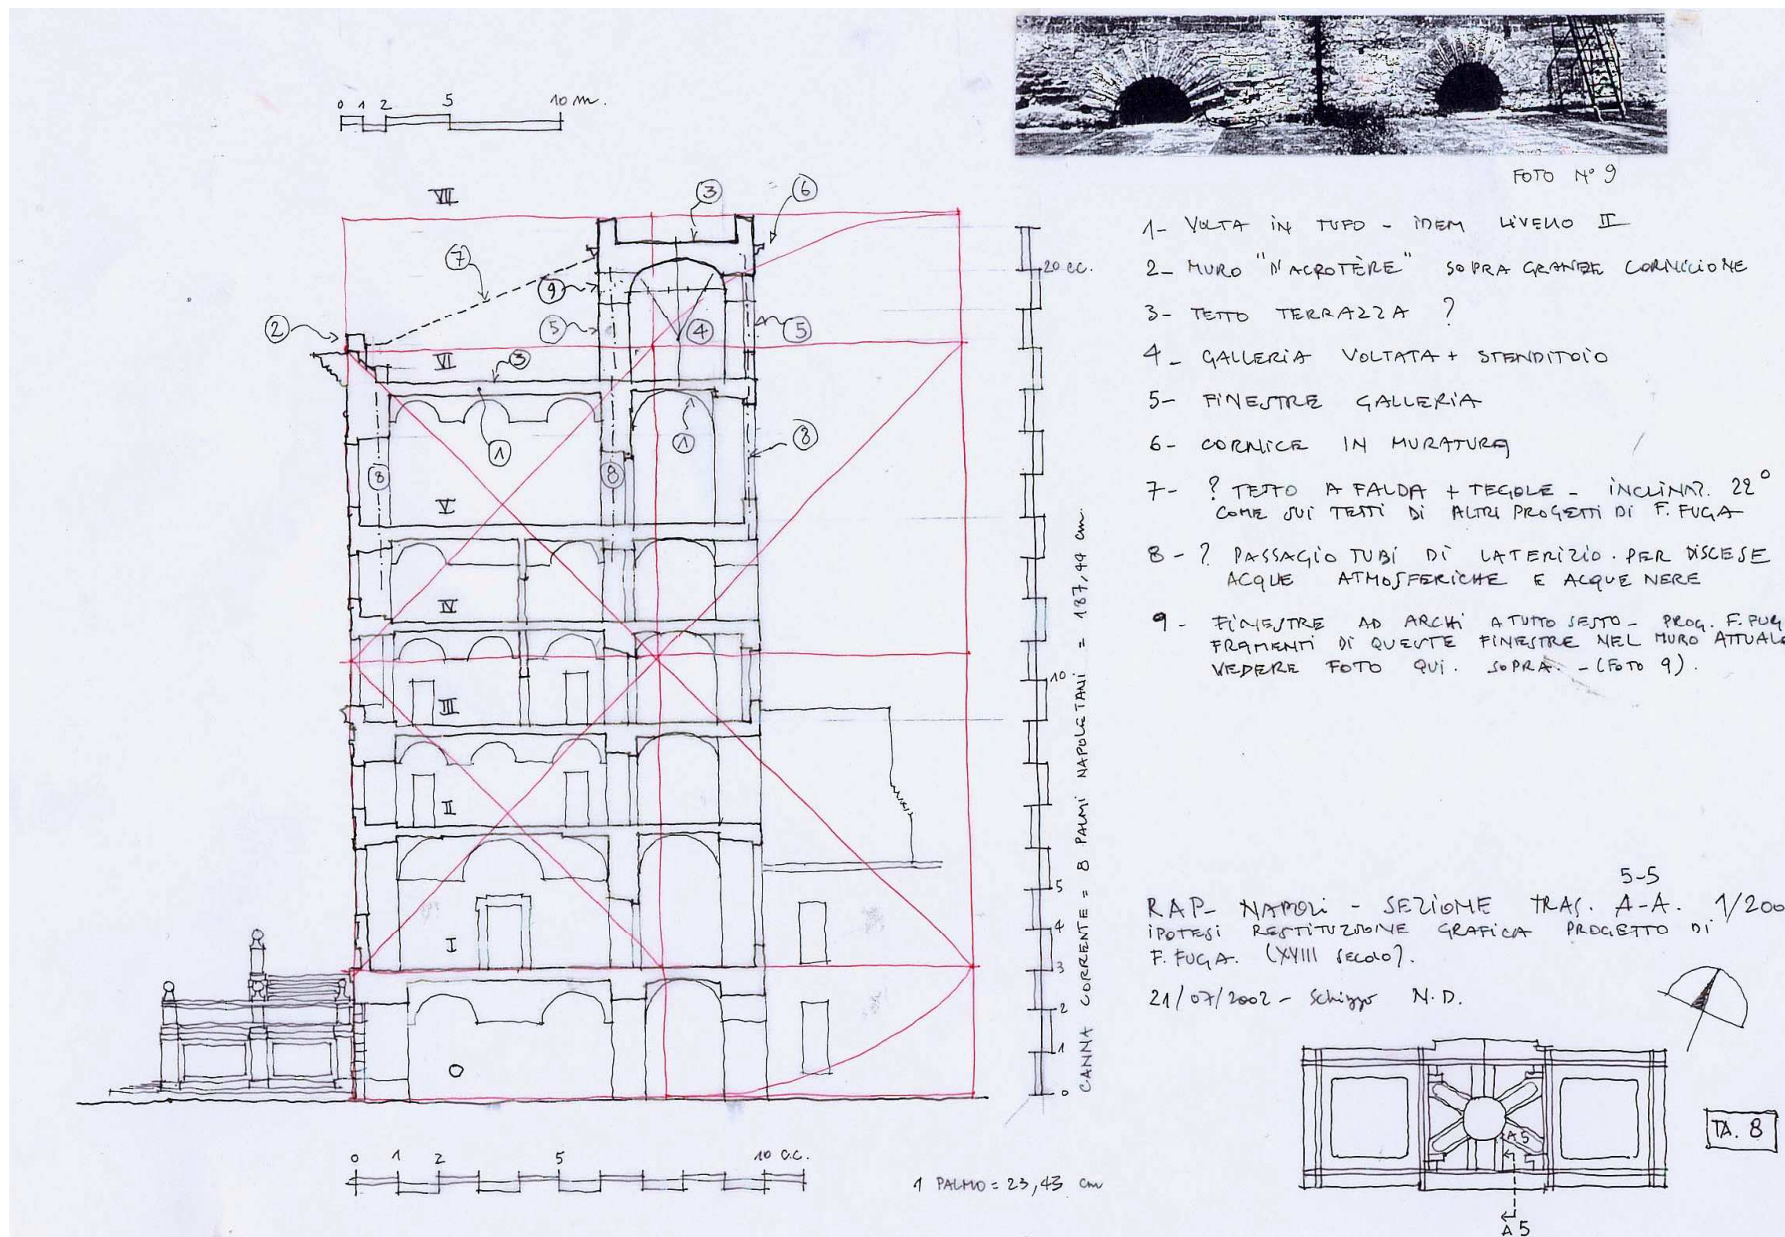 0 1 2 5 10 m.
FOTO N° 9
VII
3
6
7
9
2
5
4
5
VI
3
1
1
8
8
8
V
IV
III
II
I
20 c.c.
10
5
4
3
2
1
0
CANNA CORRENTE = 8 PALMI NAPOLETANI = 187,44 cm.
1- VOLTA IN TUFO - IDEM LIVELLO II
2- MURO "D'ACROTÈRE" SOPRA GRANDE CORNICIONE
3- TETTO TERRAZZA ?
4- GALLERIA VOLTATA + STENDITOIO
5- FINESTRE GALLERIA
6- CORNICE IN MURATURA
7- ? TETTO A FALDA + TEGOLE - INCLINAZ. 22°
COME SUI TETTI DI ALTRI PROGETTI DI F. FUGA
8- ? PASSAGIO TUBI DI LATERIZIO. PER DISCESE
ACQUE ATMOSFERICHE E ACQUE NERE
9- FINESTRE AD ARCHI A TUTTO SESTO - PROG. F. FUG
FRAMENTI DI QUESTE FINESTRE NEL MURO ATTUALE
VEDERE FOTO QUI. SOPRA. - (FOTO 9).
5-5
RAP- NAPOLI - SEZIONE TRAS. A-A. 1/200
IPOTESI RESTITUZIONE GRAFICA PROGETTO DI
F. FUGA. (XVIII SECOLO).
21/07/2002 - Schizzo N.D.
TA. 8
A5
A5
0 1 2 5 10 c.c.
1 PALMO = 23,43 cm